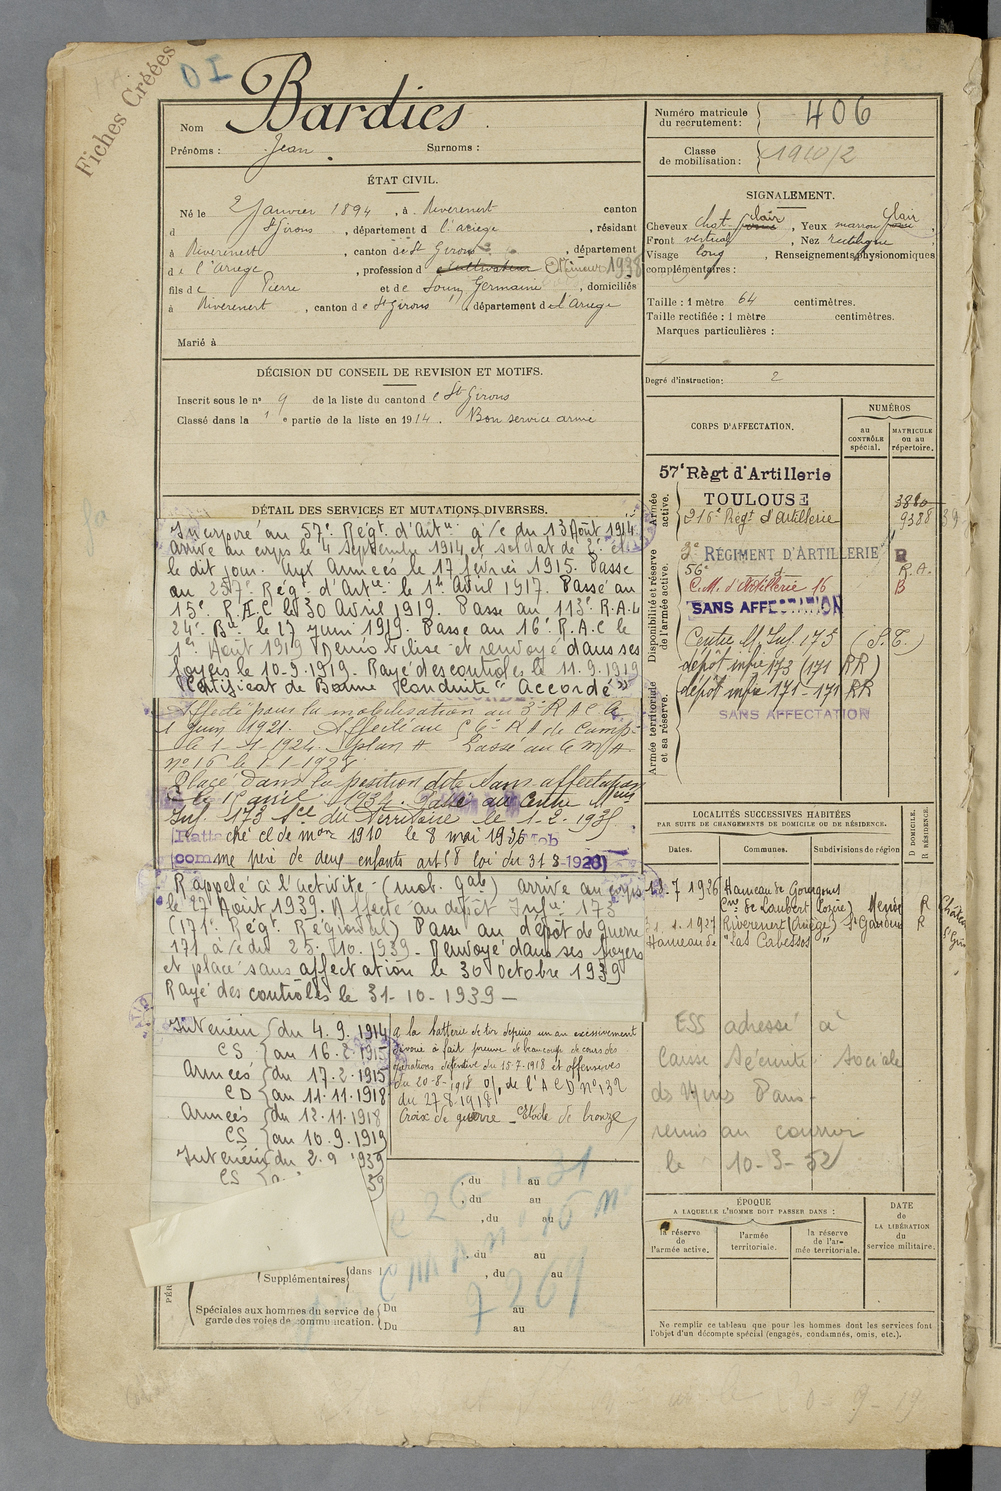 Fiches Créées
DI
Nom Bardies
Prénoms : Jean Surnoms :
ÉTAT CIVIL.
Né le 2 Janvier 1894, à Riverenert canton
d St Girons, département d l'ariege, résidant
à Riverenert, canton de St Girons, département
de l'ariege, profession d cultivateur Mineur 1938
fils de Pierre et de Souny Germaine, domiciliés
à Riverenert, canton de St Girons, département de l'ariege
Marié à
DÉCISION DU CONSEIL DE REVISION ET MOTIFS.
Inscrit sous le no 9 de la liste du canton de St Girons
Classé dans la 1 e partie de la liste en 1914. Bon service armé
DÉTAIL DES SERVICES ET MUTATIONS DIVERSES.
Incorporé au 57e Régt d'Artie à/c du 13 Août 1914
arrivé au corps le 4 septembre 1914 et soldat de 2e cl
le dit jour. Aux Armées le 17 février 1915. Passé
au 257e Régt d'Artie le 1er Avril 1917. Passé au
15e R.A.C le 30 Avril 1919. Passé au 113e R.A.L
24e Bie le 27 Juin 1919. Passé au 16e R.A.C le
1er Août 1919 Démobilisé et renvoyé dans ses
foyers le 10-9-1919. Rayé des controles le 11.9.1919
Certificat de Bonne Conduite "Accordé"
Affecté pour la mobilisation au 3e R A C A
1 Juin 1921. Affecté au 56e R A de Camp.
le 1-1-1924. plan A Passé au C M/A
no 16 le 1-1-1928
Placé dans la position dite sans affectation
le 1er avril 1934. Passé au Centre Mus
Inf. 173 Sce du Territoire le 1-2-1935
Rattaché cl de mon 1910 le 8 mai 1936
comme père de deux enfants art 58 loi du 31 3-1928)
Rappelé à l'activité (mob. gale) arrivé au corps
le 27 Août 1939. Affecté au dépôt Infie 173
(171e Régt Régional) Passé au dépôt de guerre
171 à/c du 25-10-1939 - Renvoyé dans ses foyers
et placé sans affectation le 30 octobre 1939
Rayé des contrôles le 31-10-1939 -
Intérieur (du 4.9.1914
CS (au 16-2-1915
Armées (du 17-2-1915
CD (au 11-11-1918
Armées (du 12-11-1918
CS (au 10.9.1919
Intérieur (du 2.9 1939
CS
39
a la batterie de tir depuis un an excessivement
dévoué a fait preuve de beaucoup de cours des
opérations défensive du 15-7-1918 et offensives
du 20-8-1918 O/ de l'A C D no 132
du 27-8-1918
Croix de guerre - Etoile de bronze
, du au
, du au
, du au
, du au
Supplémentaires dans l , du au
Spéciales aux hommes du service de garde des voies de communication. Du au
Du au
7269
Numéro matricule du recrutement : 406
Classe de mobilisation : 1910/2
SIGNALEMENT.
Cheveux chat. clair, Yeux marron clair
Front vertical, Nez rectiligne
Visage long, Renseignements physionomiques
complémentaires :
Taille : 1 mètre 64 centimètres.
Taille rectifiée : 1 mètre centimètres.
Marques particulières :
Degré d'instruction : 2
CORPS D'AFFECTATION.
NUMÉROS
au CONTRÔLE spécial.
MATRICULE ou au répertoire.
Armée active.
57e Règt d'Artillerie
TOULOUSE
216e Régt d'artillerie 9328
Disponibilité et réserve de l'armée active.
3e RÉGIMENT D'ARTILLERIE R
56e d° R.A.
C.M. d'Artillerie 16 B
SANS AFFECTATION
Armée territoriale et sa réserve.
Centre M. Inf. 173 (S.T.)
dépôt infie 173 (171 RR)
dépôt infie 171-171 RR
SANS AFFECTATION
LOCALITÉS SUCCESSIVES HABITÉES
PAR SUITE DE CHANGEMENTS DE DOMICILE OU DE RÉSIDENCE.
Dates. Communes. Subdivisions de région
D DOMICILE.
R RÉSIDENCE.
7 1926 Hameau de Gourgons
Cne de Laubert (Lozère) Mende R
1.1.1927 Riverenert (Ariège) St Gaudens R
Hameau de "Las Cabesses"
ESS adressé à
Caisse Sécurité Sociale
des Mines Paris -
remis au courrier
le 10-3-52
ÉPOQUE
A LAQUELLE L'HOMME DOIT PASSER DANS :
la réserve de l'armée active.
l'armée territoriale.
la réserve de l'armée territoriale.
DATE de LA LIBÉRATION du service militaire.
Ne remplir ce tableau que pour les hommes dont les services font
l'objet d'un décompte spécial (engagés, condamnés, omis, etc.).